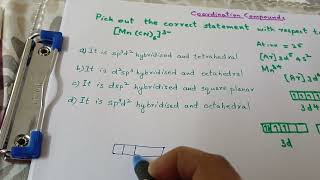 Coordination Compounds
Pick out the correct statement with respect to
[Mn(CN)6]3-
a) It is sp3d2 hybridised and tetrahedral
b) It is d2sp3 hybridised and octahedral
c) It is dsp2 hybridised and square planar
d) It is sp3d2 hybridised and octahedral
At.no = 25
[Ar] 3d5 4s2
Mn3+
[Ar] 3d
3d4
3d